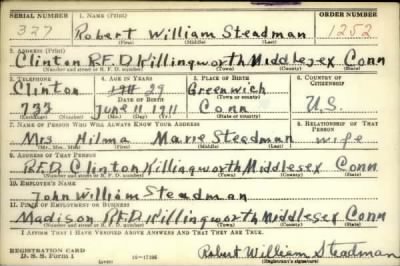 SERIAL NUMBER 1. NAME (Print) ORDER NUMBER
327 Robert William Steadman 1252
(First) (Middle) (Last)
2. ADDRESS (Print)
Clinton R.F.D. Killingworth Middlesex Conn
(Number and street or R. F. D. number) (Town) (County) (State)
3. TELEPHONE 4. AGE IN YEARS 5. PLACE OF BIRTH 6. COUNTRY OF CITIZENSHIP
Clinton 29 Greenwich
DATE OF BIRTH (Town or county)
732 June 11 1911 Conn U.S.
(Mo.) (Day) (Yr.) (State or country)
7. NAME OF PERSON WHO WILL ALWAYS KNOW YOUR ADDRESS 8. RELATIONSHIP OF THAT PERSON
Mrs Hilma Marie Steadman wife
(Mr., Mrs., Miss) (First) (Middle) (Last)
9. ADDRESS OF THAT PERSON
R.F.D. Clinton Killingworth Middlesex Conn
(Number and street or R. F. D. number) (Town) (County) (State)
10. EMPLOYER'S NAME
John William Steadman
11. PLACE OF EMPLOYMENT OR BUSINESS
Madison R.F.D. Killingworth Middlesex Conn
(Number and street or R. F. D. number) (Town) (County) (State)
I AFFIRM THAT I HAVE VERIFIED ABOVE ANSWERS AND THAT THEY ARE TRUE.
REGISTRATION CARD
D. S. S. Form 1 (over) 16-17105 Robert William Steadman
(Registrant's signature)